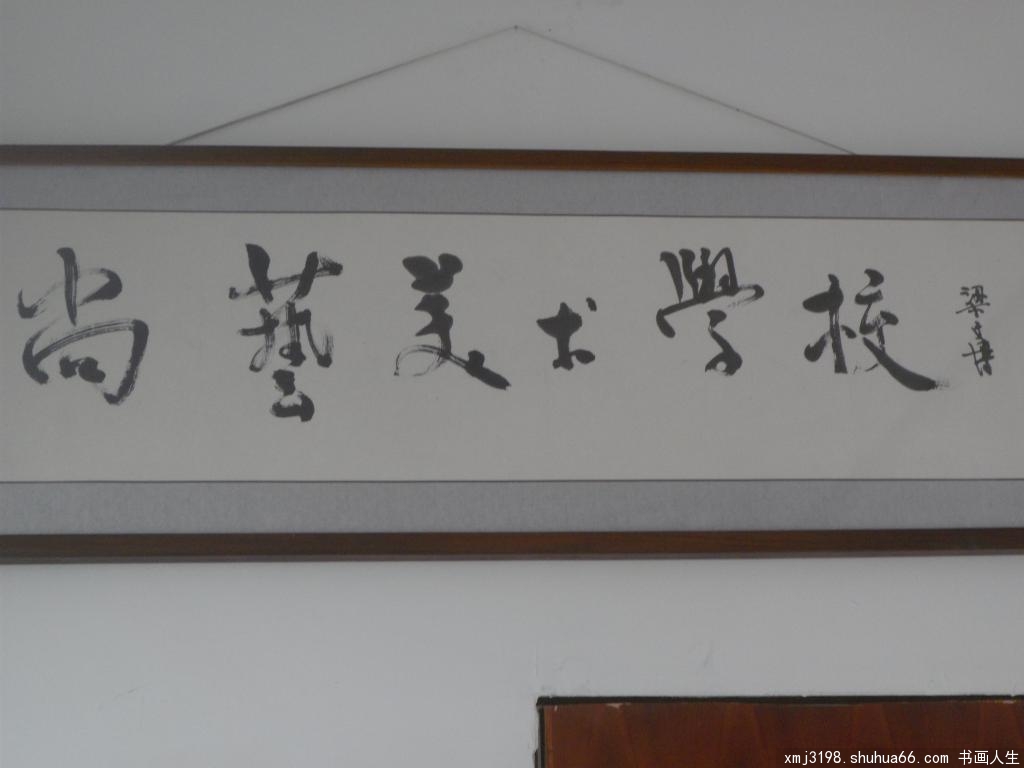 尚藝美术學校
梁文博
xmj3198.shuhua66.com 书画人生